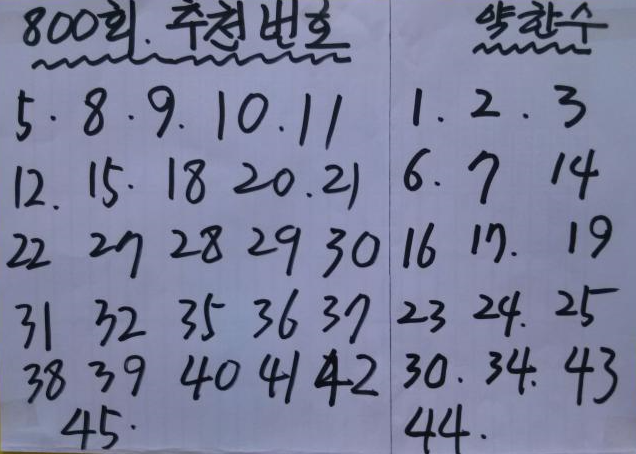 800회. 추천번호
5. 8. 9. 10. 11
12. 15. 18 20. 21
22 27 28 29 30
31 32 35 36 37
38 39 40 41 42
45.
약한수
1. 2. 3
6. 7 14
16 17. 19
23 24. 25
30. 34. 43
44.